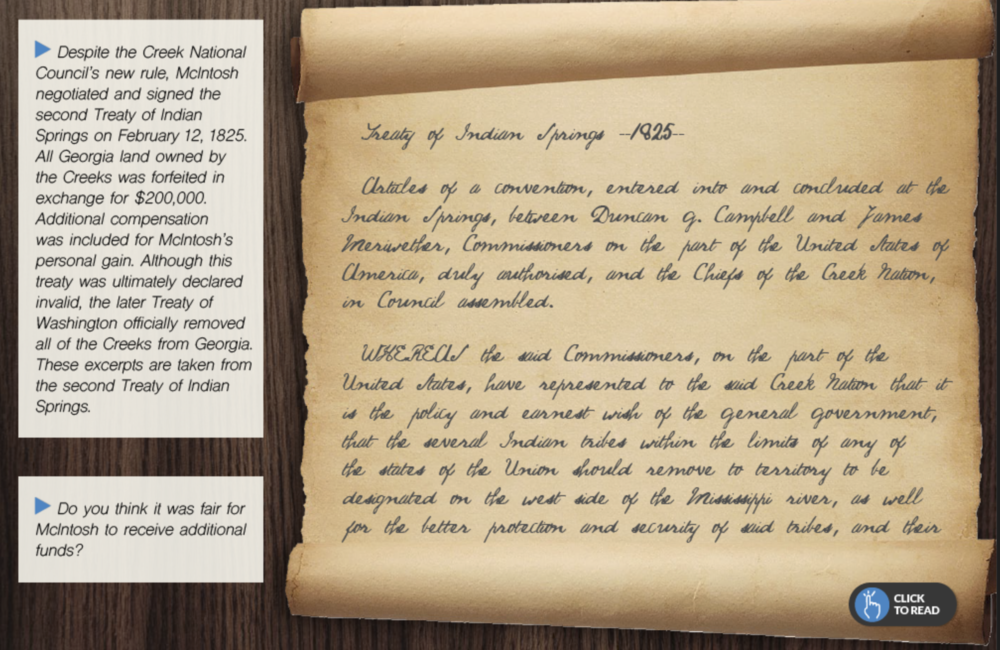 Despite the Creek National
Council's new rule, McIntosh
negotiated and signed the
second Treaty of Indian
Springs on February 12, 1825.
All Georgia land owned by
the Creeks was forfeited in
exchange for $200,000.
Additional compensation
was included for McIntosh's
personal gain. Although this
treaty was ultimately declared
invalid, the later Treaty of
Washington officially removed
all of the Creeks from Georgia.
These excerpts are taken from
the second Treaty of Indian
Springs.
Do you think it was fair for
McIntosh to receive additional
funds?
Treaty of Indian Springs --1825--
Articles of a convention, entered into and concluded at the
Indian Springs, between Duncan G. Campbell and James
Meriwether, Commissioners on the part of the United States of
America, duly authorised, and the Chiefs of the Creek Nation,
in Council assembled.
WHEREAS the said Commissioners, on the part of the
United States, have represented to the said Creek Nation that it
is the policy and earnest wish of the general government,
that the several Indian tribes within the limits of any of
the states of the Union should remove to territory to be
designated on the west side of the Mississippi river, as well
for the better protection and security of said tribes, and their
CLICK
TO READ